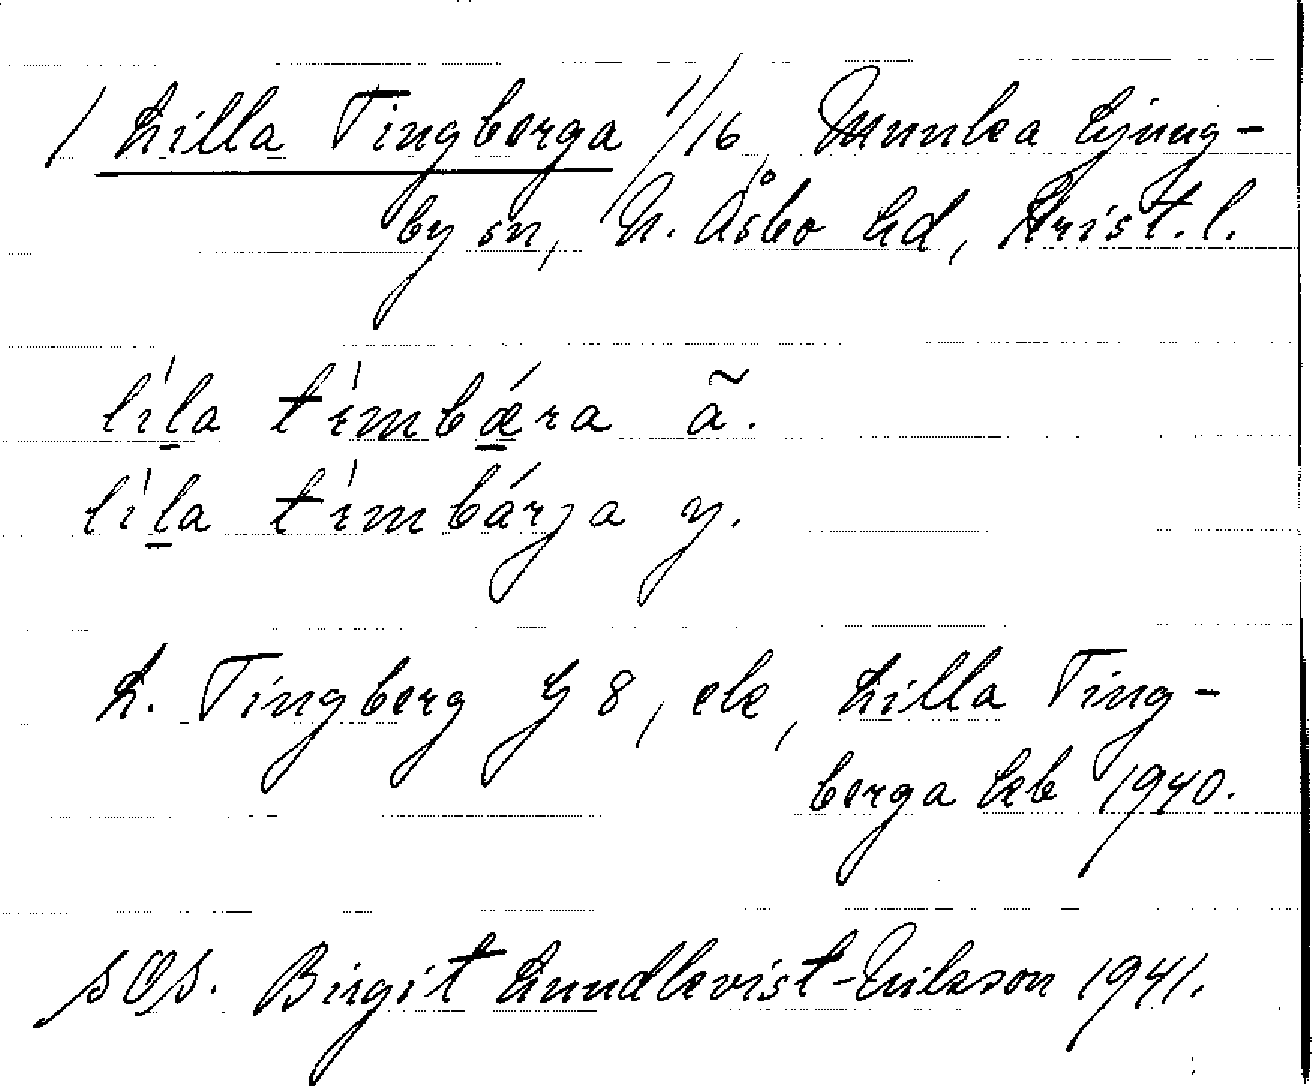 / Lilla Tingberga 1/16 Munka Ljung-
by sn, N. Åsbo hd, Krist. l.
lìla tìmbǽra ã.
lìla tìmbárja y.
L. Tingberg G 8, ek, Lilla Ting-
berga kb 1940.
SOS. Birgit Lundkvist-Eriksson 1941.